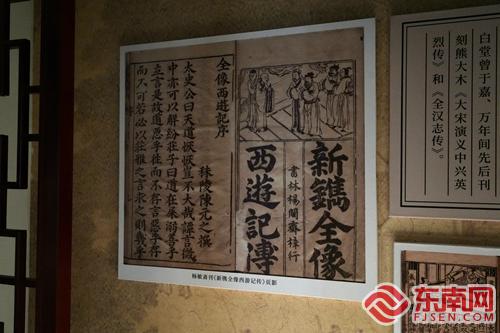 白堂曾于嘉、万年间先后刊
刻熊大木《大宋演义中兴英
烈传》和《全汉志传》。
新鐫全像
書林楊閩齋梓行
西遊記傳
全像西遊記序
秣陵陳元之撰
太史公曰天道恢恢豈不大哉譚言微
中亦可以解紛莊子曰道在屎溺善乎
立言是故道惡乎往而不存言惡乎存
而不可若必以莊雅之言求之則幾乎
杨敏斋刊《新镌全像西游记传》页影
东南网
FJSEN.COM